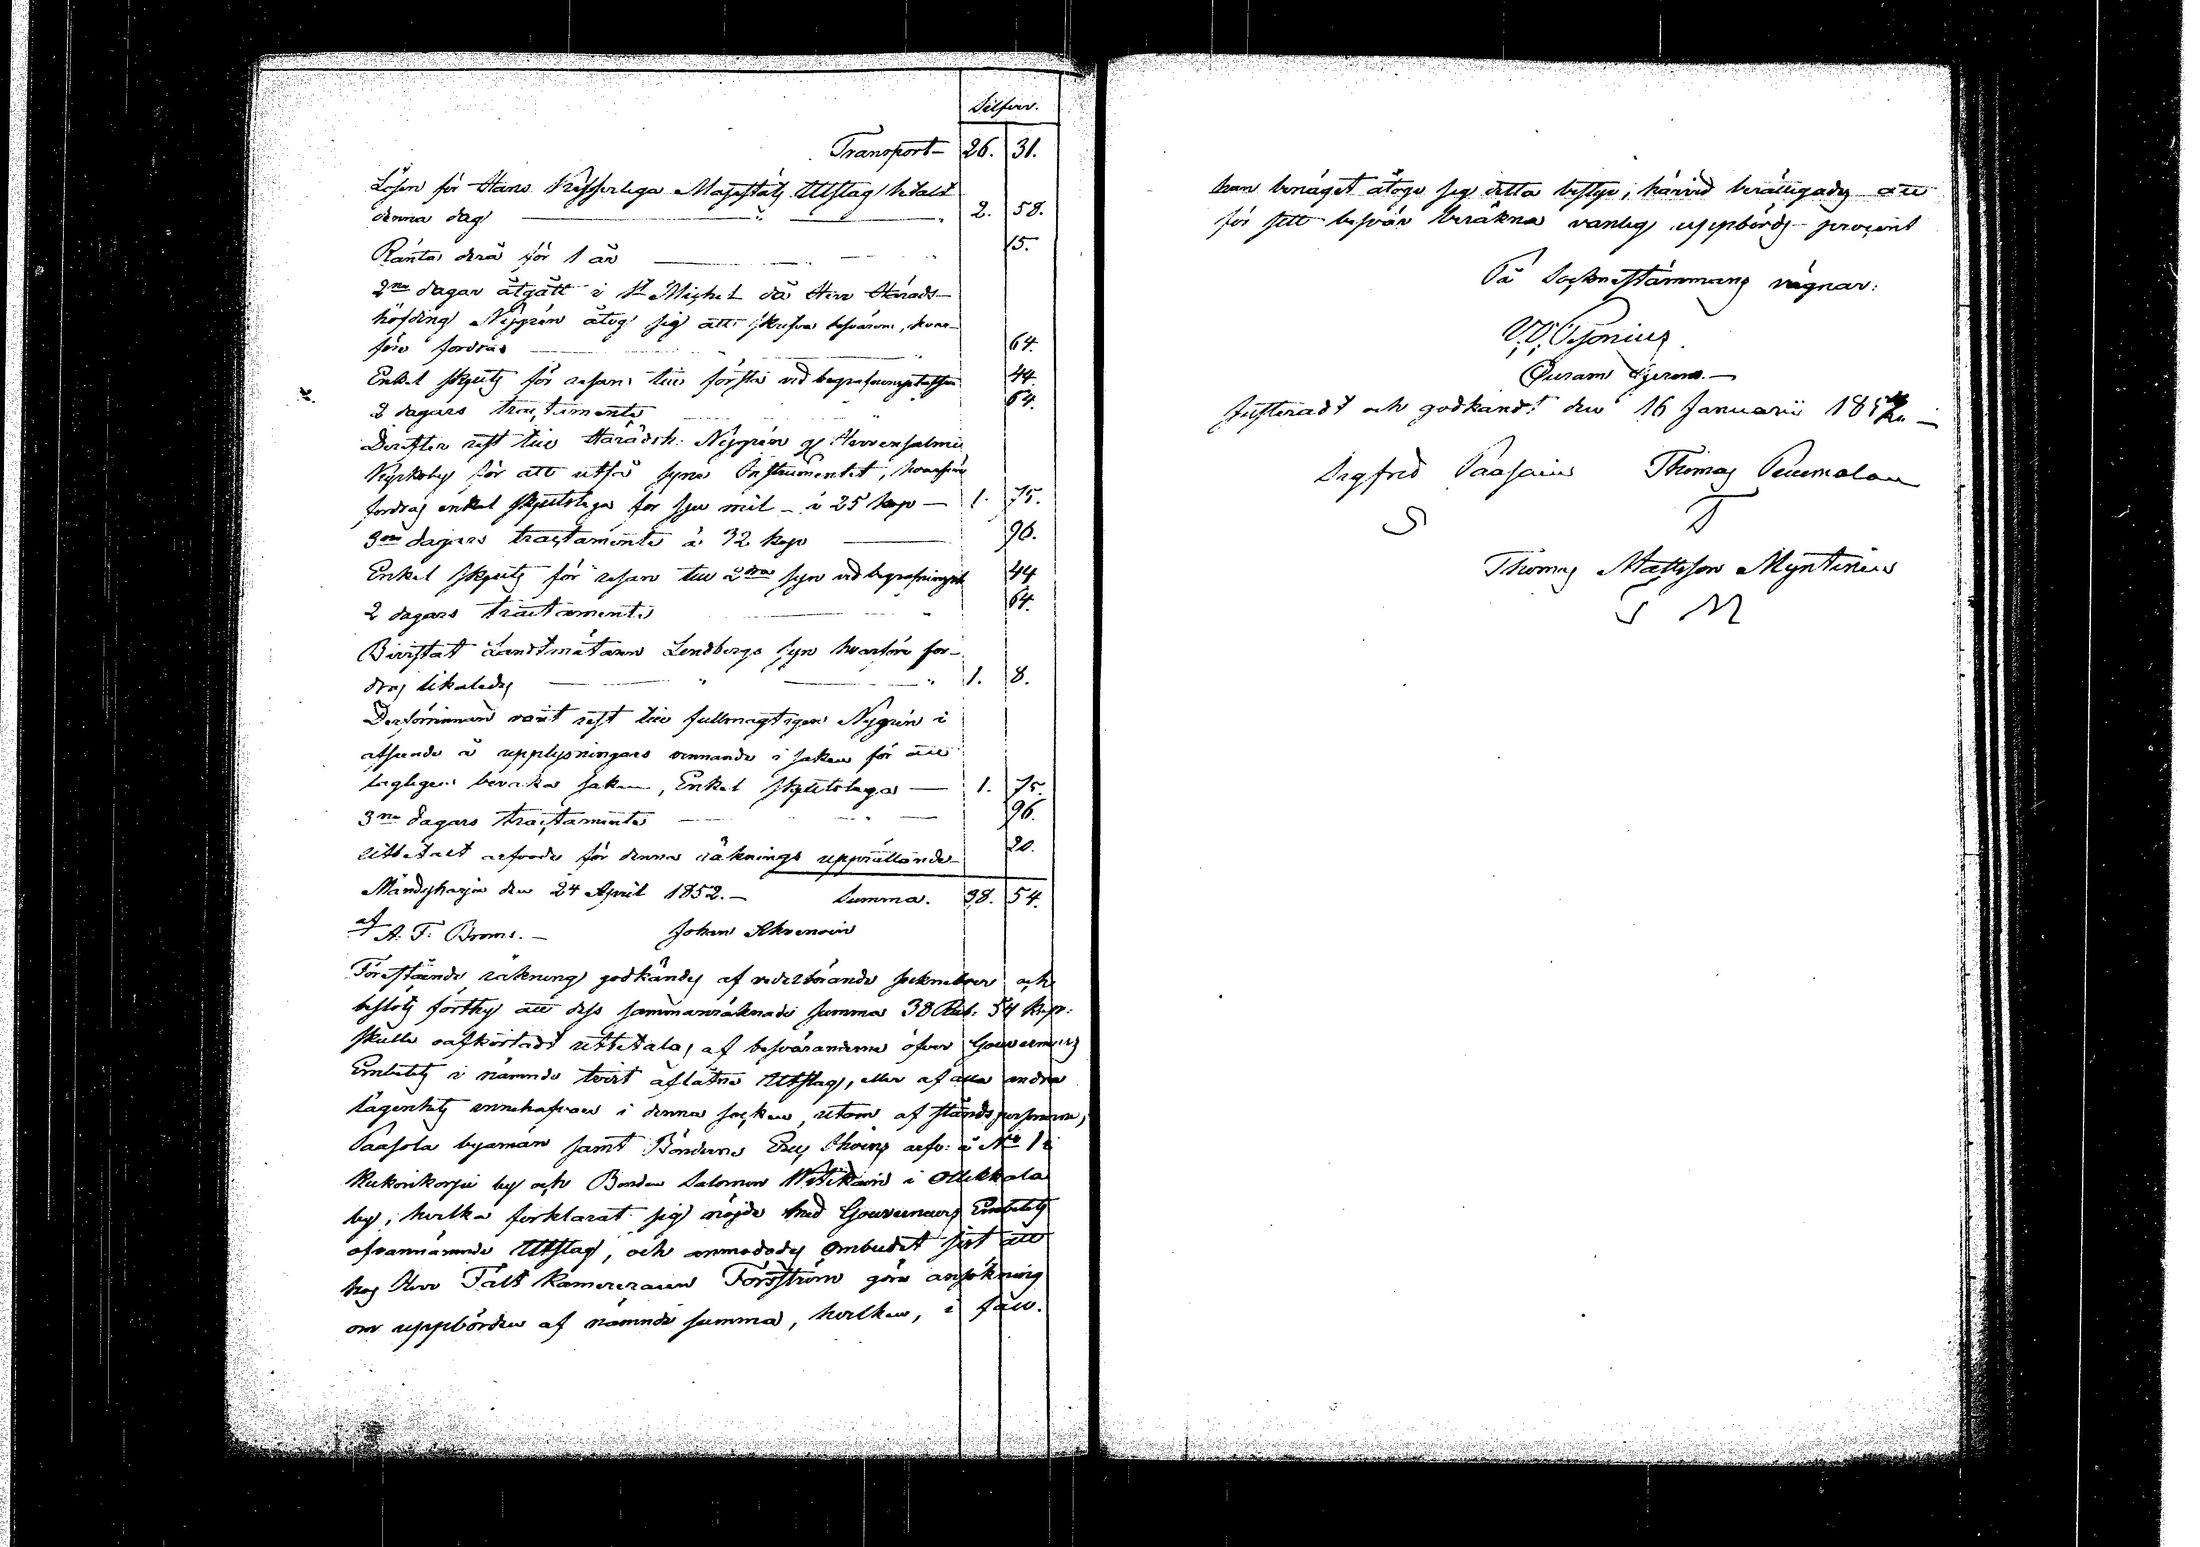 Silfver.
Transport 26. 31.
Lösen för Hans Kejserliga Majestäts Utslag betalt
denna dag 2. 58.
Ränta derå för 1 år 15.
2ne dagar åtgått i St Michel då Herr Härads-
höfding Nygrén åtog sig att skrifva besvären, hvar-
före fordras 64.
Enkel skjuts för resan till första vid begrafningsplatsen 44.
2 dagars tractamente 64.
Derefter rest till Häradsh: Nygrén Hirvensalmi
Kyrkoby för att utfå syne Instrumentet, hvarföre
fordras enkel skjutslega för sju mil à 25 kop 1. 75.
3ne dagars tractamente à 32 kop 96.
Enkel skjuts för resan till 2dra syn vid begrafningspl. 44
2 dagars tractamente 64.
Bivistat Landtmätaren Lendbergs syn hvarföre for-
dras likaledes 1. 8.
Derförinnan varit rest till fullmägtigen Nygrén i
afseende å upplysningars vinnande i saken för att
lagligen bevaka saken, Enkel skjutslega 1. 75.
3ne dagars tractamente 96.
Utbetalt arfvode för denna räknings upprättande 20.
Mändyharju den 24 April 1852.- Summa. 38. 54.
af A. F. Broms.- Johan Ahvenain
Förestående räkning godkändes af vederbörande sockneboer och
beslöts förthy att dess sammanräknade summa 38 Rub: 54 Kop:
skulle oafkortadt utbetalas af besväranderne öfver Gouverneurs
Embetets i nämnde tvist aflåtne Utslag, eller af alla andra
lägenhets innehafvare i denna socken, utom af ståndspersoner,
Paasola byamän samt Bönderne Eric Ihoins arfv: å No 1 i
Kukonkorpi by och Bonden Salomon Witikain i Ollikkala
by, hvilka förklarat sig nöjde med Gouverneurs Embetets
ofvannämnde Utslag, och anmodades ombudet först att
hos Herr Fält Kamereraren Forsström göra ansökning
om uppbörden af nämnde summa, hvilken, i fall.
han benäget åtoge sig detta bestyr, härvid berättigades att
för sitt besvär beräkna vanlig uppbörds procent
På Sockenstämmans vägnar:
Justeradt och godkändt den 16 Januarii 185
Sigfrid Paasain Thomas Peuemalain
S T
Thomas Mattsson Myntinen
T M